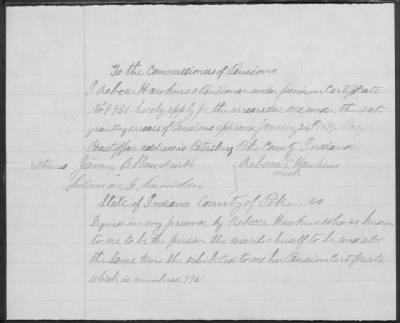 To the Commissioners of Pensions
I Rebeca Hawkins a Pensioner under Pension Certificate
No 9961 hereby apply for the arrears due me under the act
granting arrears of Pensions approved January 25th 1879 My
Post office address is Petersburg Pike County Indiana
witness James B
Rebeca Hawkins
mark
Solomon G Snowden
State of Indiana County of Pike, ss
Signed in my presence by Rebeca Hawkins who is known
to me to be the person she describes herself to be and at
the same time she exhibited to me her Pension Certificate
which is numbered 9961